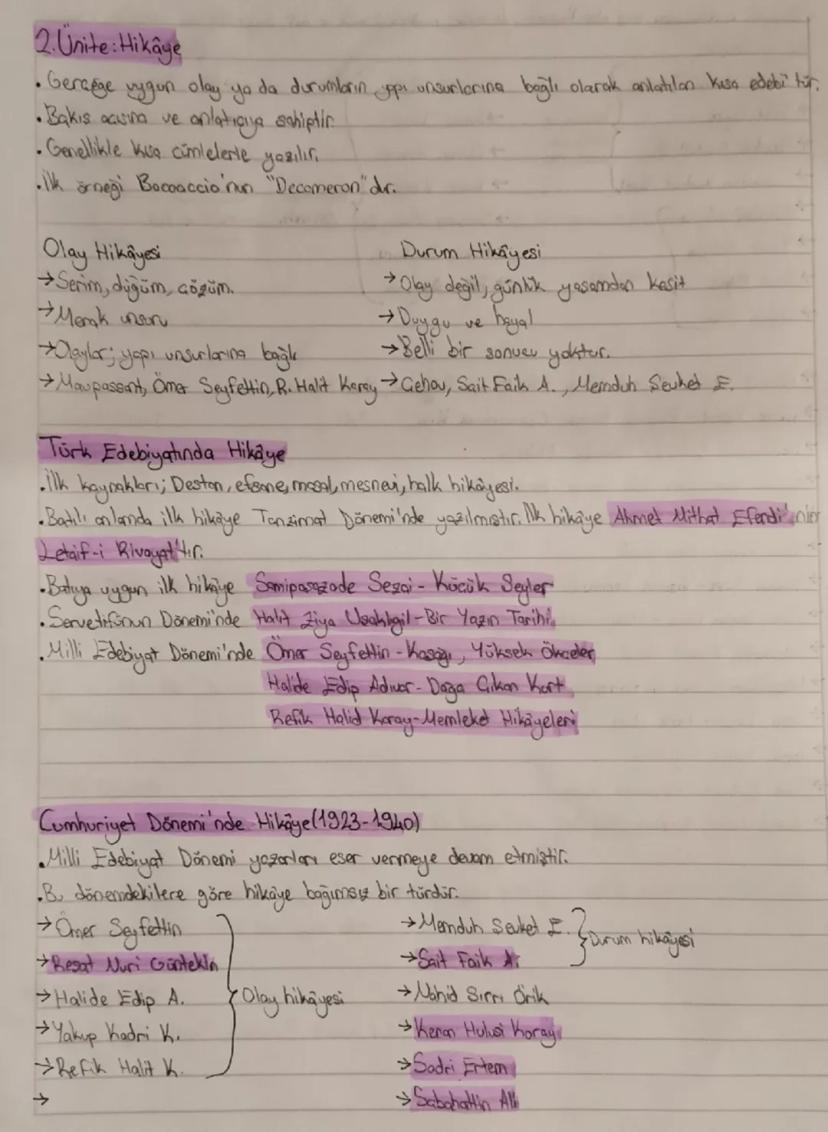 2.Ünite: Hikâye
• Gerçeğe uygun olay ya da durumların yapı unsurlarına bağlı olarak anlatılan kısa edebi tür.
• Bakış açısına ve anlatıcıya sahiptir.
• Genellikle kısa cümlelerle yazılır.
• İlk örneği Bocoaccio'nun "Decomeron"dır.
Olay Hikâyesi
→ Serim, düğüm, çözüm.
→ Merak unsuru
→ Olaylar; yapı unsurlarına bağlı
→ Maupassant, Ömer Seyfettin, R. Halit Karay
Durum Hikâyesi
→ Olay değil, günlük yaşamdan kesit
→ Duygu ve hayal
→ Belli bir sonucu yoktur.
→ Çehov, Sait Faik A., Memduh Şevket E.
Türk Edebiyatında Hikâye
• İlk kaynakları; Destan, efsane, masal, mesnevi, halk hikâyesi.
• Batılı anlamda ilk hikâye Tanzimat Dönemi'nde yazılmıştır. İlk hikâye Ahmet Mithat Efendi'nin
Letaif-i Rivayat'tır.
• Batıya uygun ilk hikâye Samipaşazade Sezai - Küçük Şeyler
• Servetifünun Dönemi'nde Halit Ziya Uşaklıgil - Bir Yazın Tarihi
• Milli Edebiyat Dönemi'nde Ömer Seyfettin - Kaşağı, Yüksek Ökçeler
Halide Edip Adıvar - Dağa Çıkan Kurt
Refik Halid Karay - Memleket Hikâyeleri
Cumhuriyet Dönemi'nde Hikâye (1923-1940)
• Milli Edebiyat Dönemi yazarları eser vermeye devam etmiştir.
• Bu dönemdekilere göre hikâye bağımsız bir türdür.
→ Ömer Seyfettin
→ Reşat Nuri Güntekin
→ Halide Edip A.
→ Yakup Kadri K.
→ Refik Halit K.
→
Olay hikâyesi
→ Memduh Şevket E.
→ Sait Faik A.
Durum hikâyesi
→ Nahid Sırrı Örik
→ Kenan Hulusi Koray
→ Sadri Ertem
→ Sabahattin Ali